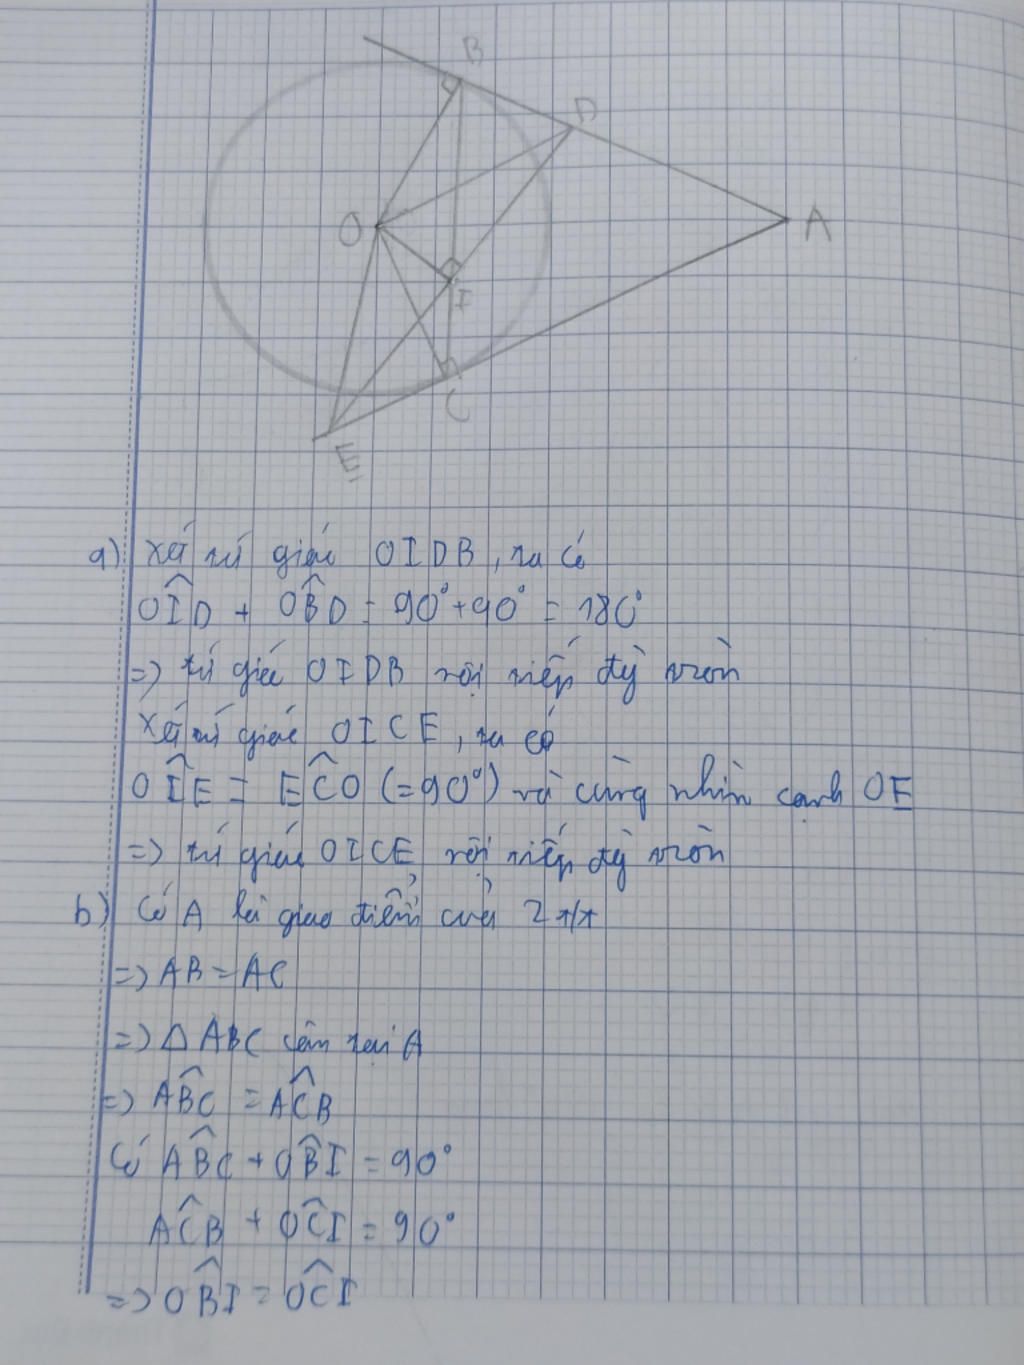 B
D
O
A
I
C
E
a) Xét tứ giác OIDB, ta có
OÎD + OB̂D = 90° + 90° = 180°
=> tứ giác OIDB nội tiếp đg tròn
Xét tứ giác OICE, ta có
OÎE = EĈO (= 90°) và cùng nhìn cạnh OE
=> tứ giác OICE nội tiếp đg tròn
b) Có A là giao điểm của 2 t/t
=> AB = AC
=> Δ ABC cân tại A
=> AB̂C = AĈB
Có AB̂C + OB̂I = 90°
AĈB + OĈI = 90°
=> OB̂I = OĈI